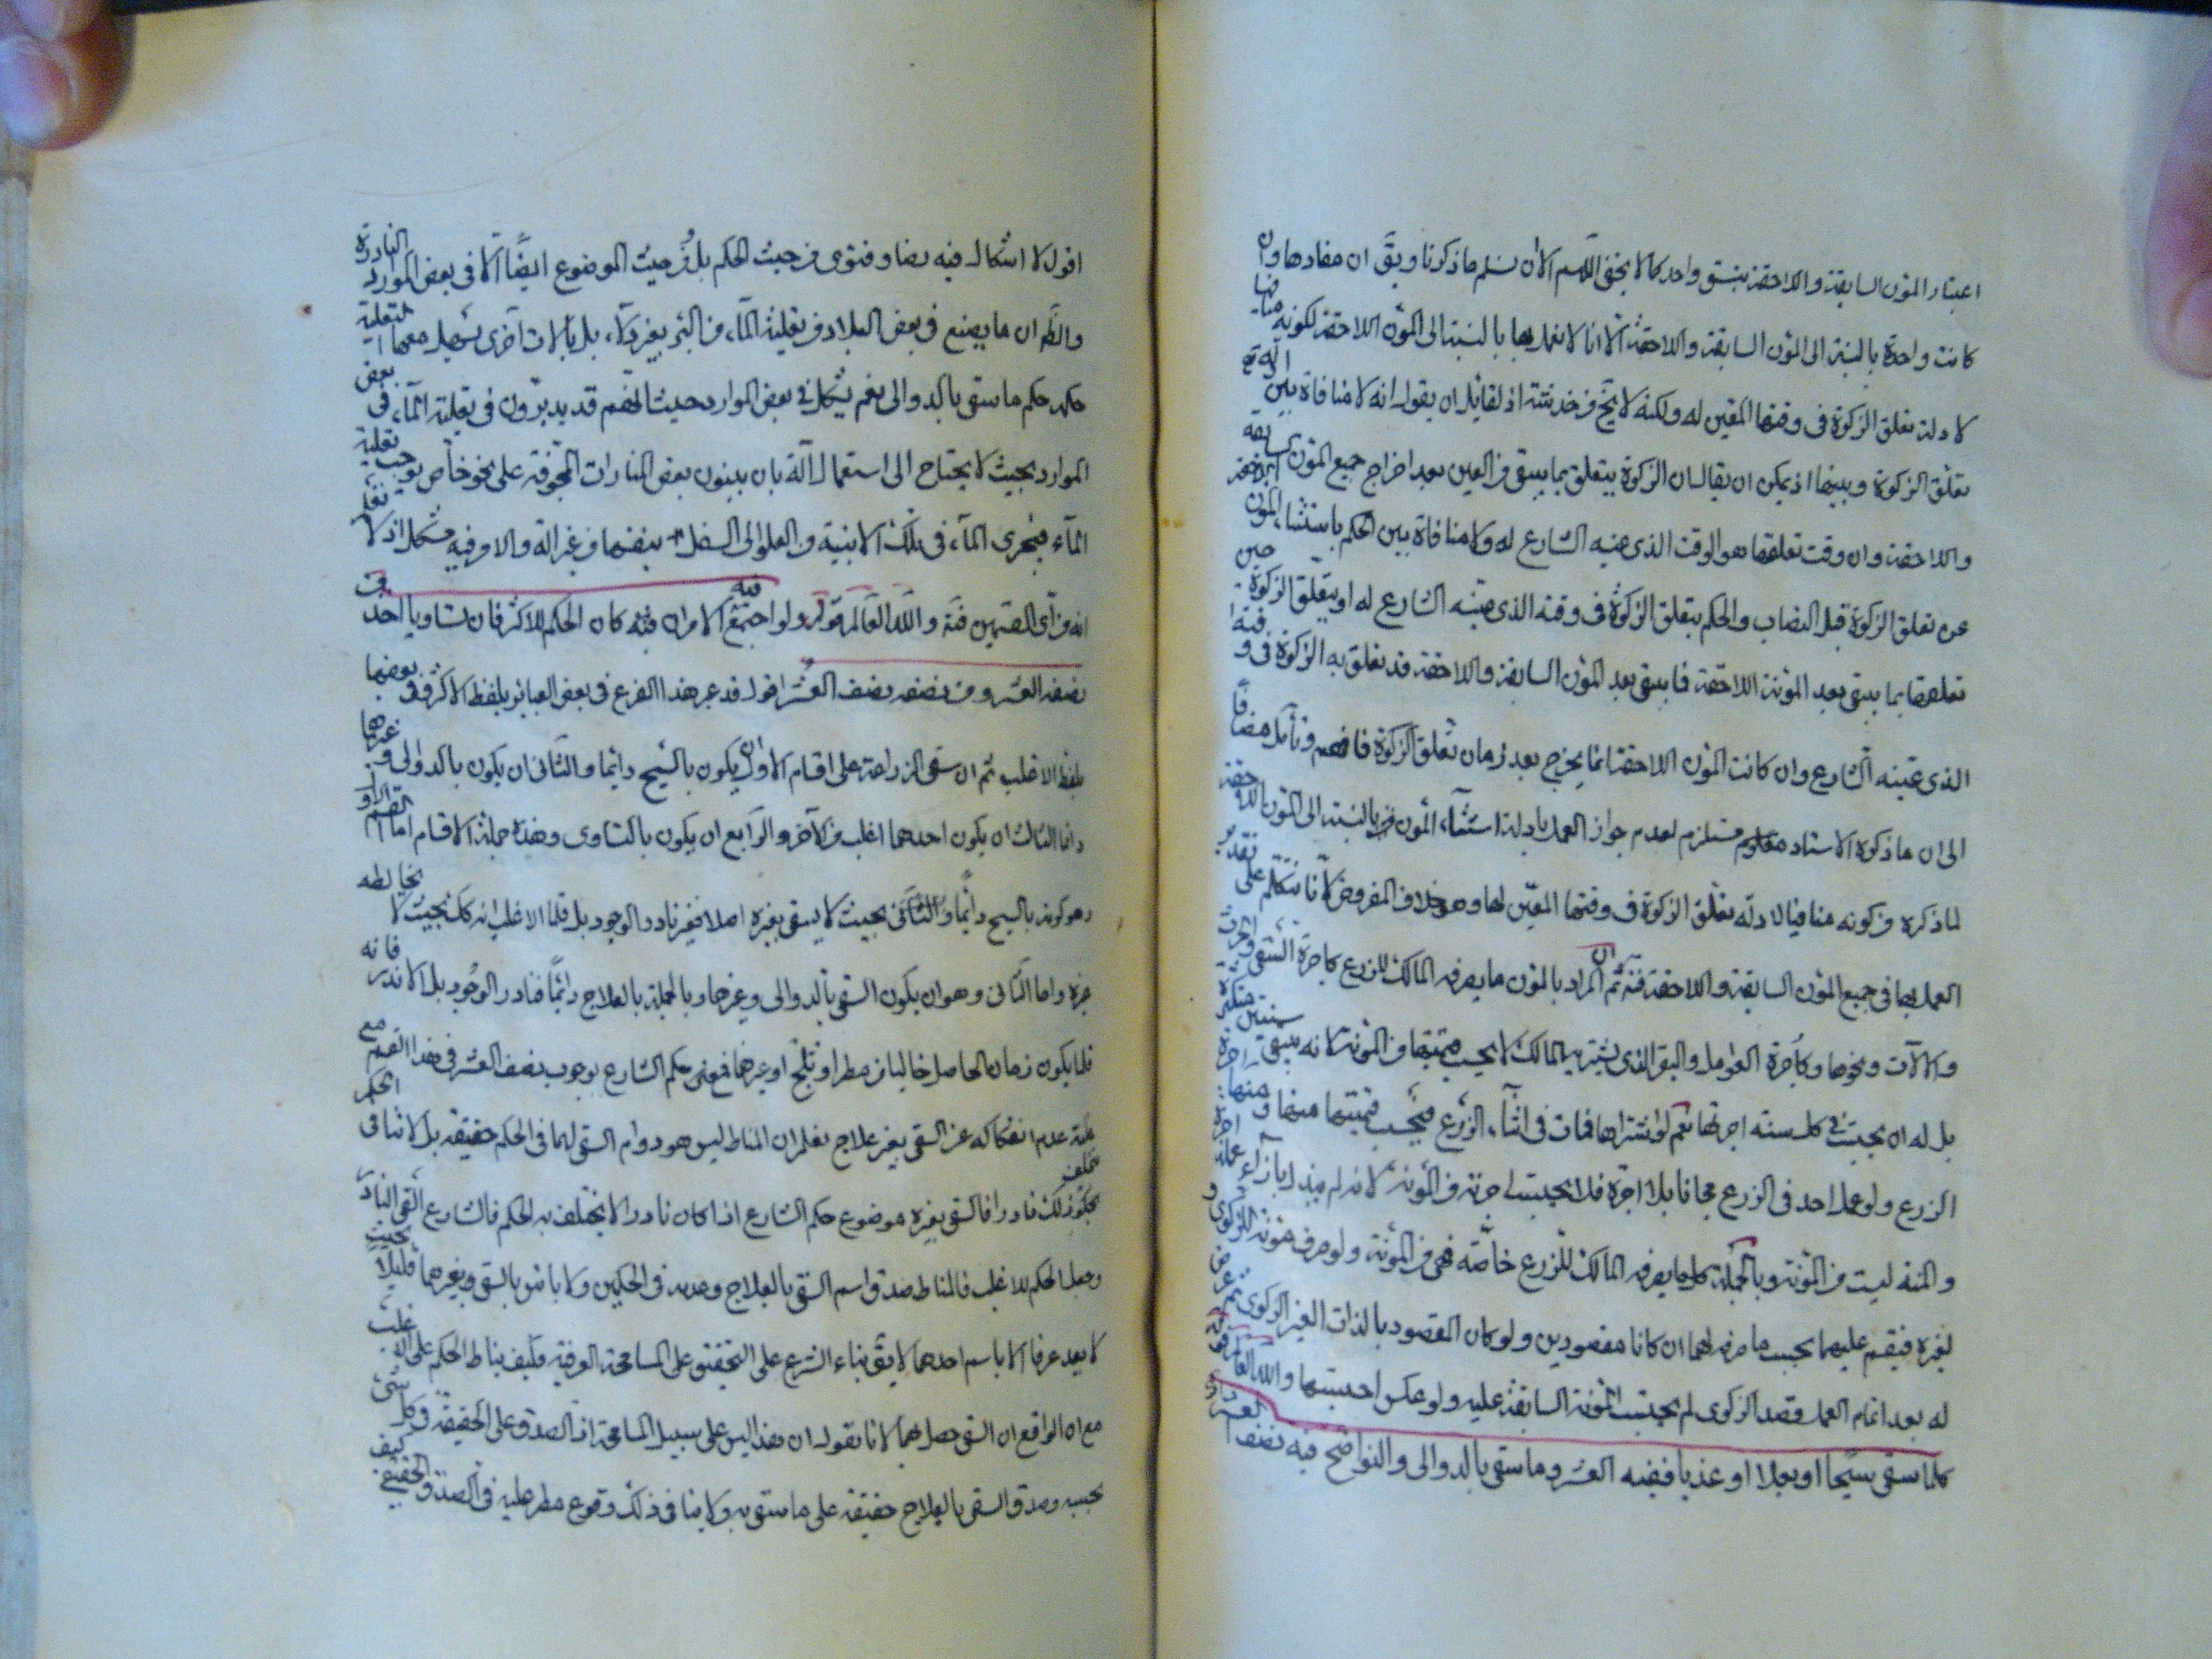 اعتبار المؤن السابقة واللاحقة بنسق واحد كما لا يخفى اللهم الا ان نسلم ما ذكرنا ويق ان مفادها وان
كانت واحدة بالنسبة الى المؤن السابقة واللاحقة الا انا لا نعمل بها بالنسبة الى المؤن اللاحقة لكونه منافيا
لادلة تعلق الزكوة فى وقتها المعين له ولكنه لا يخ من خدشة اذ لقائل ان يقول انه لا منافاة بين ادلة
تعلق الزكوة وبينها اذ يمكن ان يقال ان الزكوة يتعلق بما يبقى من العين بعد اخراج جميع المؤن السابقة
واللاحقة وان وقت تعلقها هو الوقت الذى عينه الشارع له ولا منافاة بين الحكم باستثناء المؤن
عن تعلق الزكوة قبل النصاب والحكم بتعلق الزكوة فى وقته الذى عينه الشارع له او يتعلق الزكوة حين
تعلقها بما يبقى بعد المؤنة اللاحقة فما يبقى بعد المؤن السابقة واللاحقة قد تعلق به الزكوة فى وقته
الذى عينه الشارع وان كانت المؤن اللاحقة انما يخرج بعد زمان تعلق الزكوة فافهم وتأمل مضافا
الى ان ما ذكره الاستاد مستلزم لعدم جواز العمل بادلة استثناء المؤن بالنسبة الى المؤن اللاحقة
لما ذكره من كونه منافيا لادلة تعلق الزكوة فى وقتها المعين لها وهو خلاف المفروض لانا نتكلم على تقدير
العمل بها فى جميع المؤن السابقة واللاحقة فتم ثم ان المراد بالمؤن ما يصرفه المالك للزرع كاجرة السقى والحرث
والآلات ونحوها وكاجرة العوامل والبقر الذى يشتريه المالك لا يحسب قيمتها من المؤنة لانه يبقى سنين متكثرة
بل له ان يحسب فى كل سنة اجرتها نعم لو اشتراها فماتت فى اثناء الزرع فيحسب قيمتها منها و
الزرع ولو عمل احد فى الزرع مجانا بلا اجرة فلا يحتسب اجرته من المؤنة لانه لم يبذل بازاء عمله اجرة
والمنة ليست من المؤنة وبالجملة كلما يصرفه المالك للزرع خاصة فهى من المؤنة ولو صرف مؤنة للزكوى و
لغيره فيقسم عليهما بحسب ما صرفه لهما ان كانا مقصودين ولو كان المقصود بالذات الغير الزكوى ثم عرض
له بعد اتمام العمل قصد الزكوى لم يحتسب المؤنة السابقة عليه ولو عكس احتسبها والله العالم قوله
كلما سقى سيحا او بعلا او عذيا ففيه العشر وما سقى بالدوالى والنواضح فيه نصف العشر
اقول لا اشكال فيه نصا وفتوى من حيث الحكم بل من حيث الموضوع ايضا الا فى بعض الموارد النادرة
والظ ان ما يصنع فى بعض البلاد فى تعلية الماء من البئر بغير دلاء بل بآلات اخرى يسهل معها التعلية
حكمه حكم ما سقى بالدوالى نعم يشكل فى بعض الموارد حيث انهم قد يدبرون فى تعلية الماء فى بعض
الموارد بحيث لا يحتاج الى استعمال آلة بان يبنون بعض المنارات المجوفة على نحو خاص يوجب تعلية
الماء فيجرى الماء فى تلك الابنية من العلو الى السفل بنفسها من غير آلة والامر فيه مشكل اذ لا نعلم
انه من اى القسمين فتم والله العالم قوله ولو اجتمع فيه الامران كان الحكم للاكثر فان تساويا احد من
نصفه العشر ومن نصفه نصف العشر اقول قد عبر هذا الفرع فى بعض العبائر بلفظ الاكثر وفى بعضها
بلفظ الاغلب ثم ان سقى الزراعة على اقسام الاول ان يكون بالسيح دائما والثانى ان يكون بالدوالى وغيرها
دائما الثالث ان يكون احدهما اغلب من الآخر والرابع ان يكون بالتساوى وهذه جملة الاقسام اما القسم الاول
وهو كونه بالسيح دائما بحيث لا يسقى بغيره اصلا فغير نادر الوجود بل قلما الاغلب انه كك بحيث لا يخالطه
غيره واما الثانى وهو ان يكون السقى بالدوالى وغيرها وبالجملة بالعلاج دائما فنادر الوجود بل الاندر فانه
قلما يكون زمان الحاصل خاليا من مطر او ثلج او غيرهما فمعنى حكم الشارع بوجوب نصف العشر فى هذا القسم مع
غلبة عدم انفكاكه عن السقى بغير علاج نعلم ان المناط ليس هو دوام السقى لهما فى الحكم حقيقة بل لا ينافى الحكم
تخلف ذلك نادرا فالسقى بغيره موضوع حكم الشارع اذا كان نادرا لا يختلف به الحكم فالشارع القى النادر
وجعل الحكم للاغلب فالمناط صدق اسم السقى بالعلاج وعدمه فى الحكمين ولا باس بالسقى وبغيرهما قليلا بحيث
لا يعد عرفا الا باسم احدهما لا يق بناء الشرع على التحقيق لا على المسامحة العرفية فكيف يناط الحكم على الاغلب
مع ان الواقع ان السقى حصل بهما لانا نقول ان هذا ليس على سبيل المسامحة اذ الصدق على الحقيقة فى كل شئ
بحسبه وصدق السقى بالعلاج حقيقة على ما سقى به ولا ينافى ذلك وقوع مطر عليه فى الصدق الحقيقى كيف